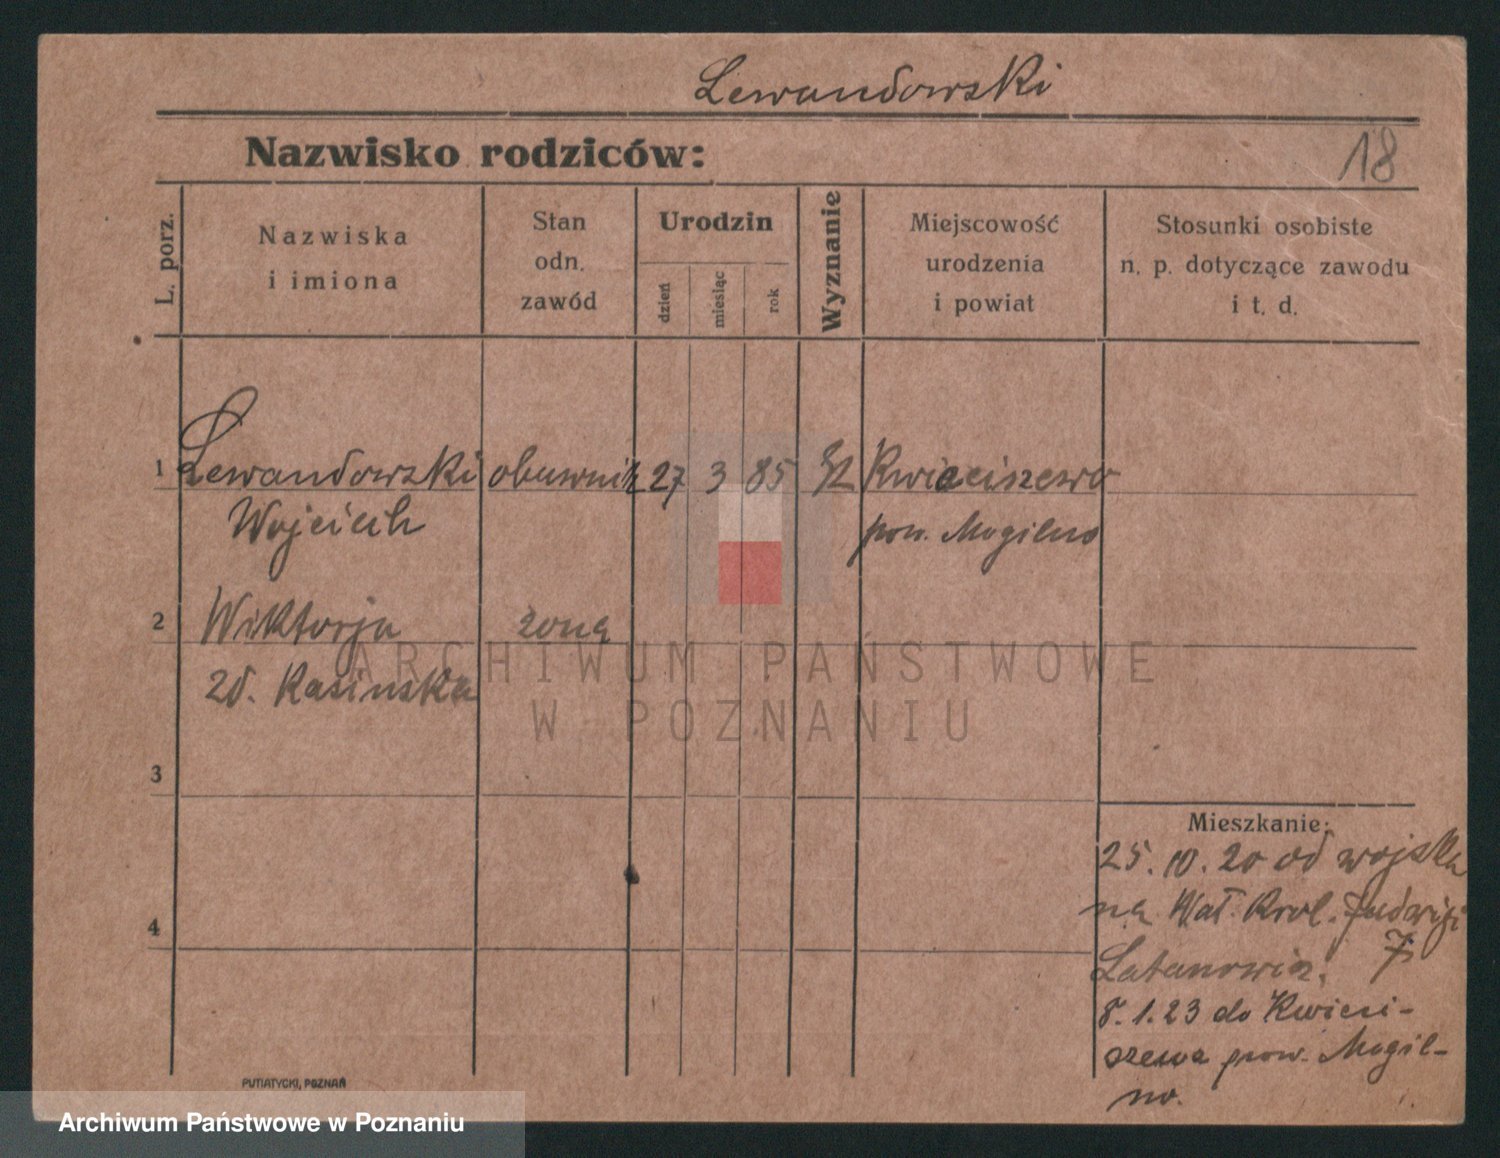 Lewandowski
Nazwisko rodziców:
18
L. porz.
Nazwiska
i imiona
Stan
odn.
zawód
Urodzin
dzień
miesiąc
rok
Wyznanie
Miejscowość
urodzenia
i powiat
Stosunki osobiste
n. p. dotyczące zawodu
i t. d.
1 Lewandowski obuwnik 27 3 85 Kwieciszewo
Wojciech pow. Mogilno
2 Wiktorja żona
zd. Kasinska
ARCHIWUM PAŃSTWOWE
W POZNANIU
3
Mieszkanie:
25. 10. 20 od wojska
na Wał. Król. Jadwigi
7
4
8. 1. 23 do Kwieci-
szewa pow. Mogil-
no.
PUTIATYCKI, POZNAŃ
Archiwum Państwowe w Poznaniu